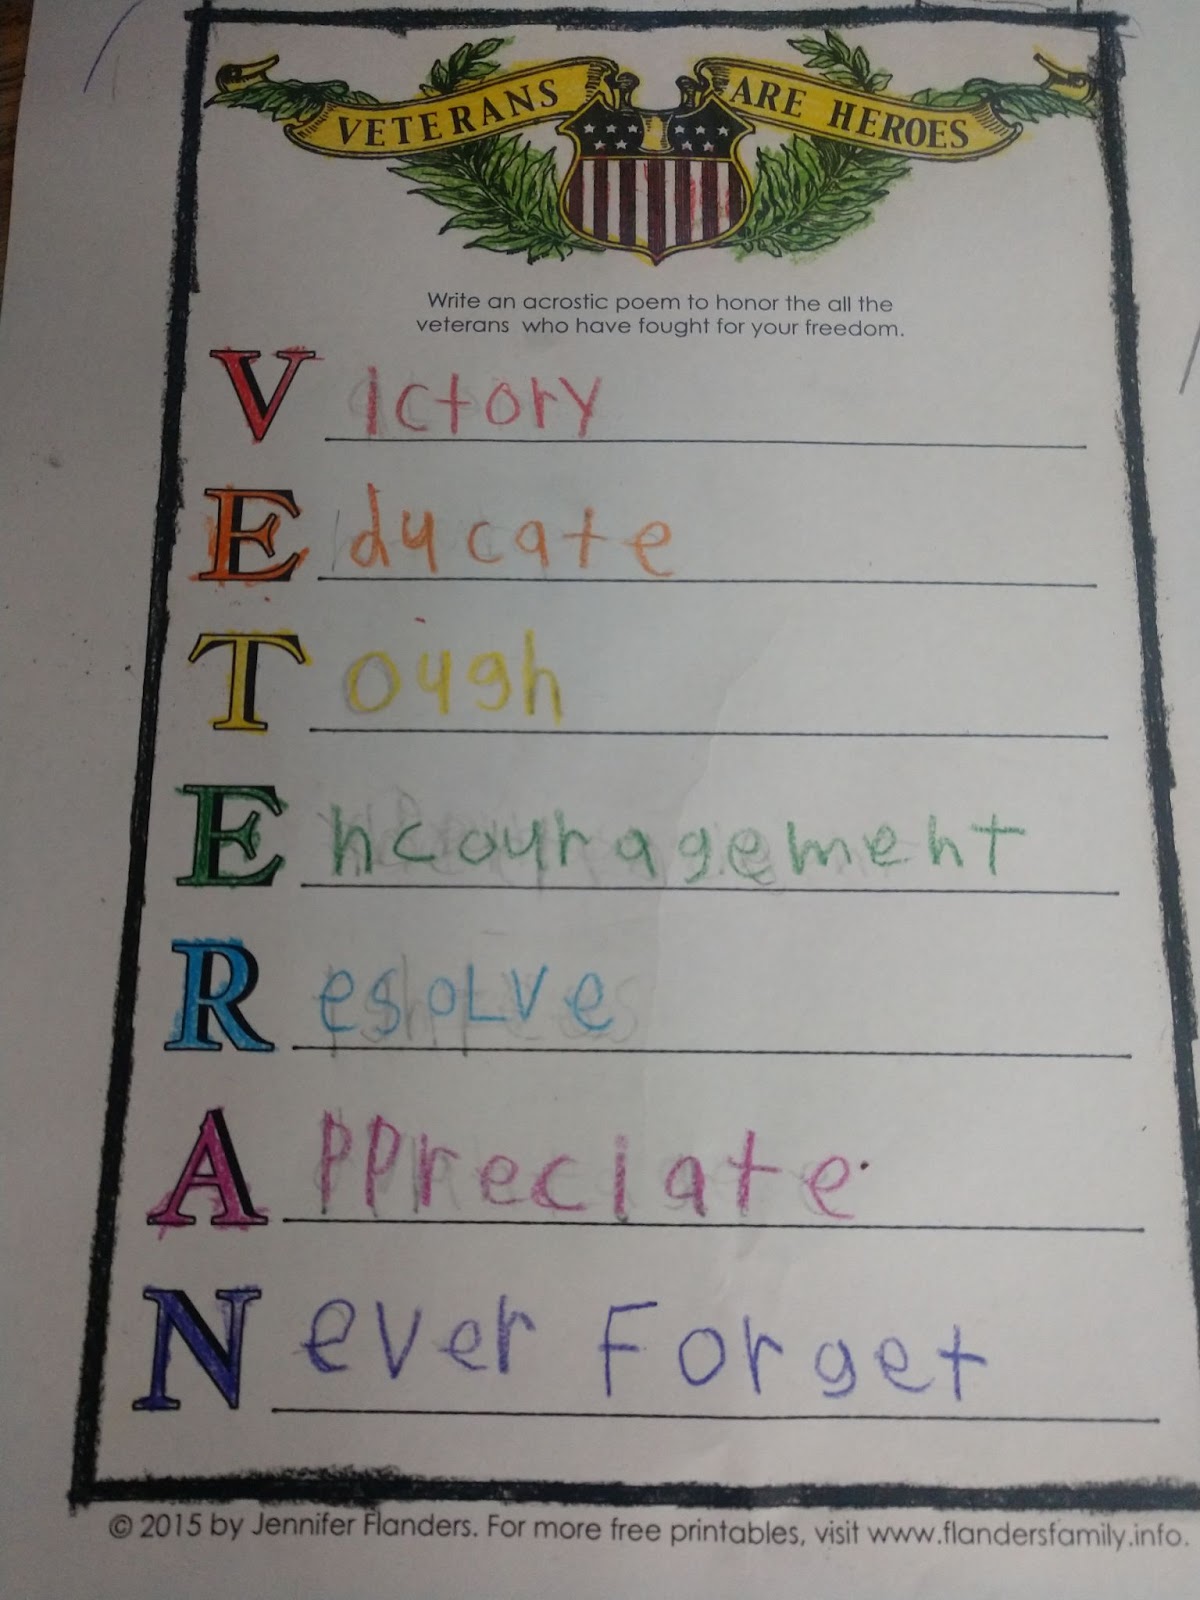 VETERANS ARE HEROES
Write an acrostic poem to honor the all the
veterans who have fought for your freedom.
Victory
Educate
Tough
Encouragement
Resolve
Appreciate
Never Forget
© 2015 by Jennifer Flanders. For more free printables, visit www.flandersfamily.info.